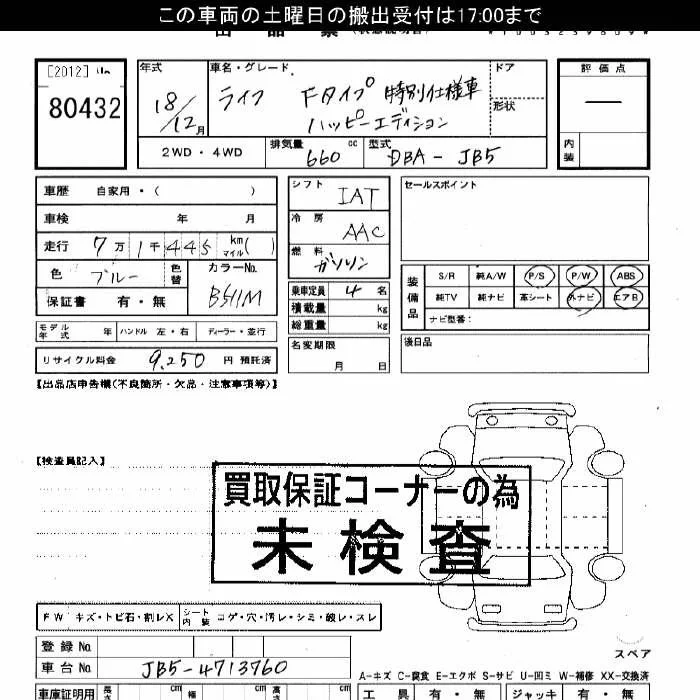 この車両の土曜日の搬出受付は17:00まで
[2012]
80432
年式
18/12月
車名・グレード
ライフ Fタイプ 特別仕様車
ハッピーエディション
ドア
形状
評価点
—
内装
2WD・4WD
排気量 660 cc
型式 DBA-JB5
車歴 自家用・( )
車検 年 月
走行 7万1千445 km マイル( )
色 ブルー 色替
カラーNo. B511M
保証書 有・無
モデル年式 年 ハンドル 左・右 ディーラー・並行
リサイクル料金 9,250 円 預託済
シフト IAT
冷房 AAC
燃料 ガソリン
乗車定員 4 名
積載量 kg
総重量 kg
名変期限
月 日
セールスポイント
装備品
S/R 純A/W P/S P/W ABS
純TV 純ナビ 革シート 外ナビ エアB
ナビ型番:
後日品
【出品店申告欄(不良箇所・欠品・注意事項等)】
【検査員記入】
買取保証コーナーの為
未検査
FW キズ・トビ石・割レX
シート内装 コゲ・穴・汚レ・シミ・破レ・スレ
スペア
登録No.
車台No. JB5-4713760
A-キズ C-腐食 E-エクボ S-サビ U-凹ミ W-補修 XX-交換済
車庫証明用 長さ cm 幅 cm 高さ cm
工具 有・無 ジャッキ 有・無